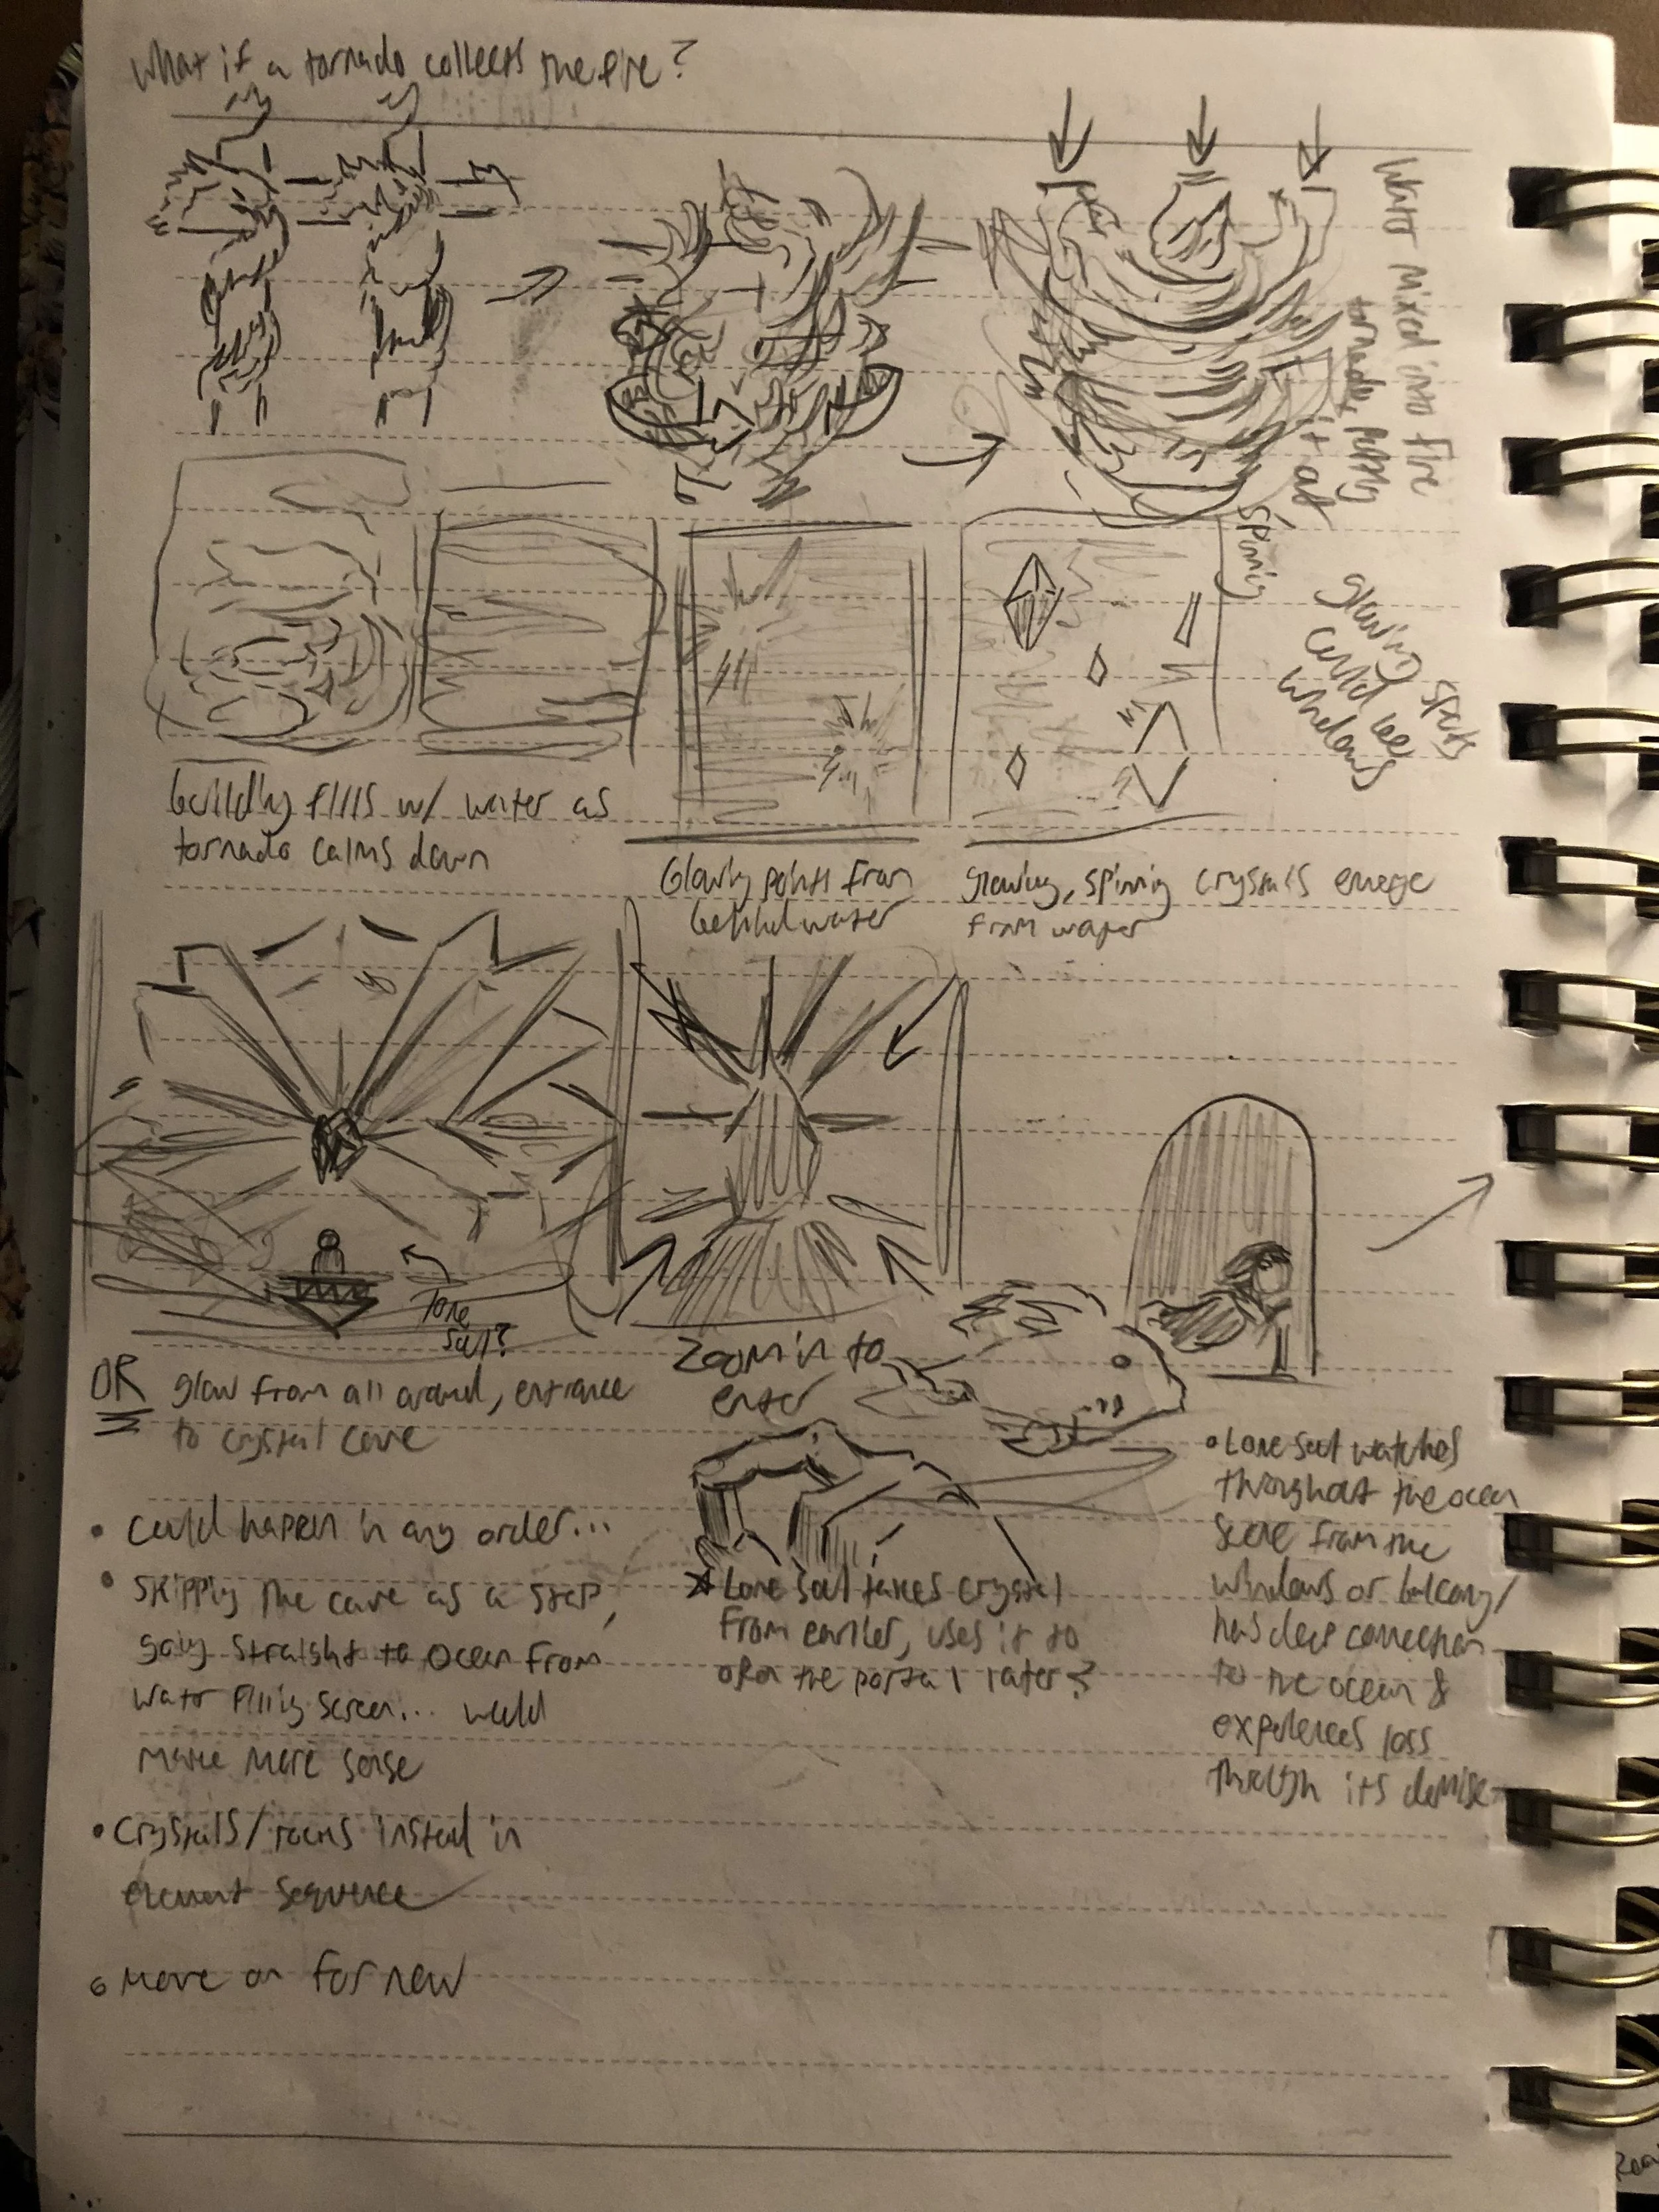 What if a tornado collects the fire?
Water mixed into fire
tornado, putting
it out
spinning
glowing spots
could be
windows
building fills w/ water as
tornado calms down
Glowing points from
behind water
glowing, spinning crystals emerge
from water
Lone
Soul?
OR glow from all around, entrance
to crystal cave
Zoom in to
enter
• Could happen in any order...
• Skipping the cave as a step,
going straight to ocean from
water filling screen... would
make more sense
• Crystals/rocks instead in
element sequence
• Move on for now
Lone Soul takes crystal
from earlier, uses it to
open the portal later?
• Lone Soul watches
throughout the ocean
scene from the
windows or balcony/
has deep connection
to the ocean &
experiences loss
through its demise